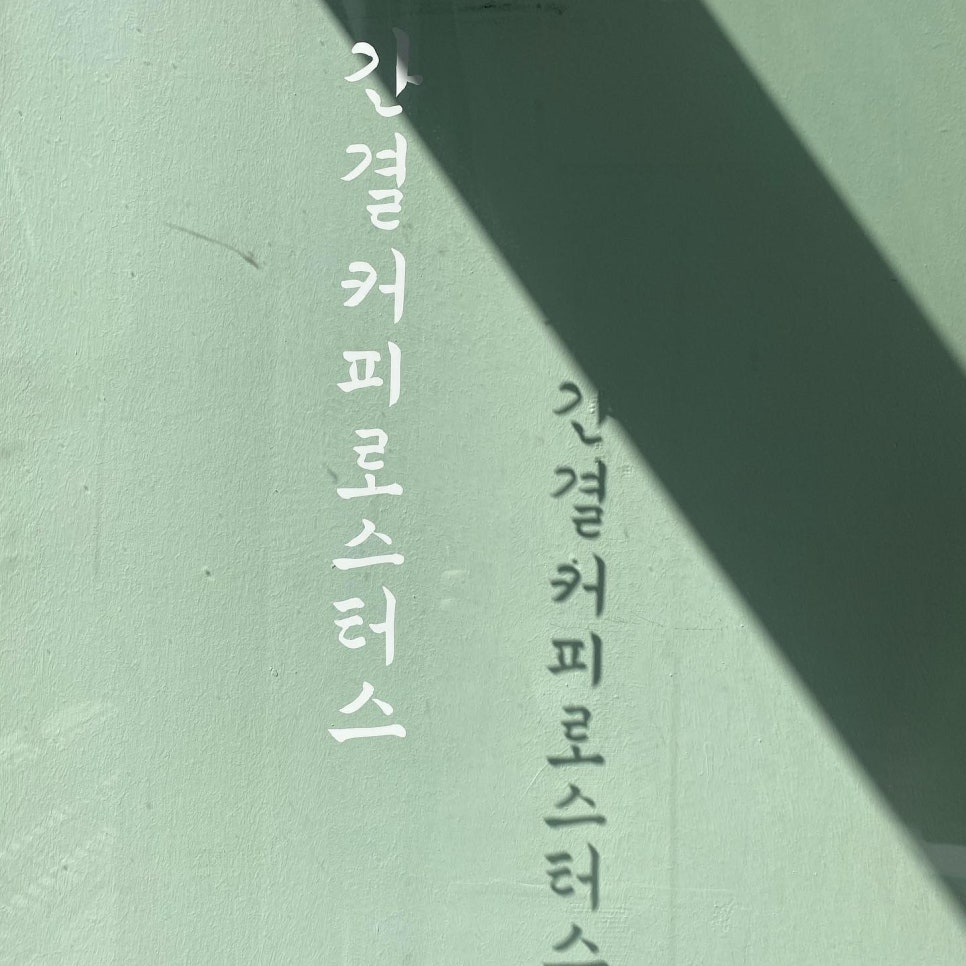 간결커피로스터스
간결커피로스터스